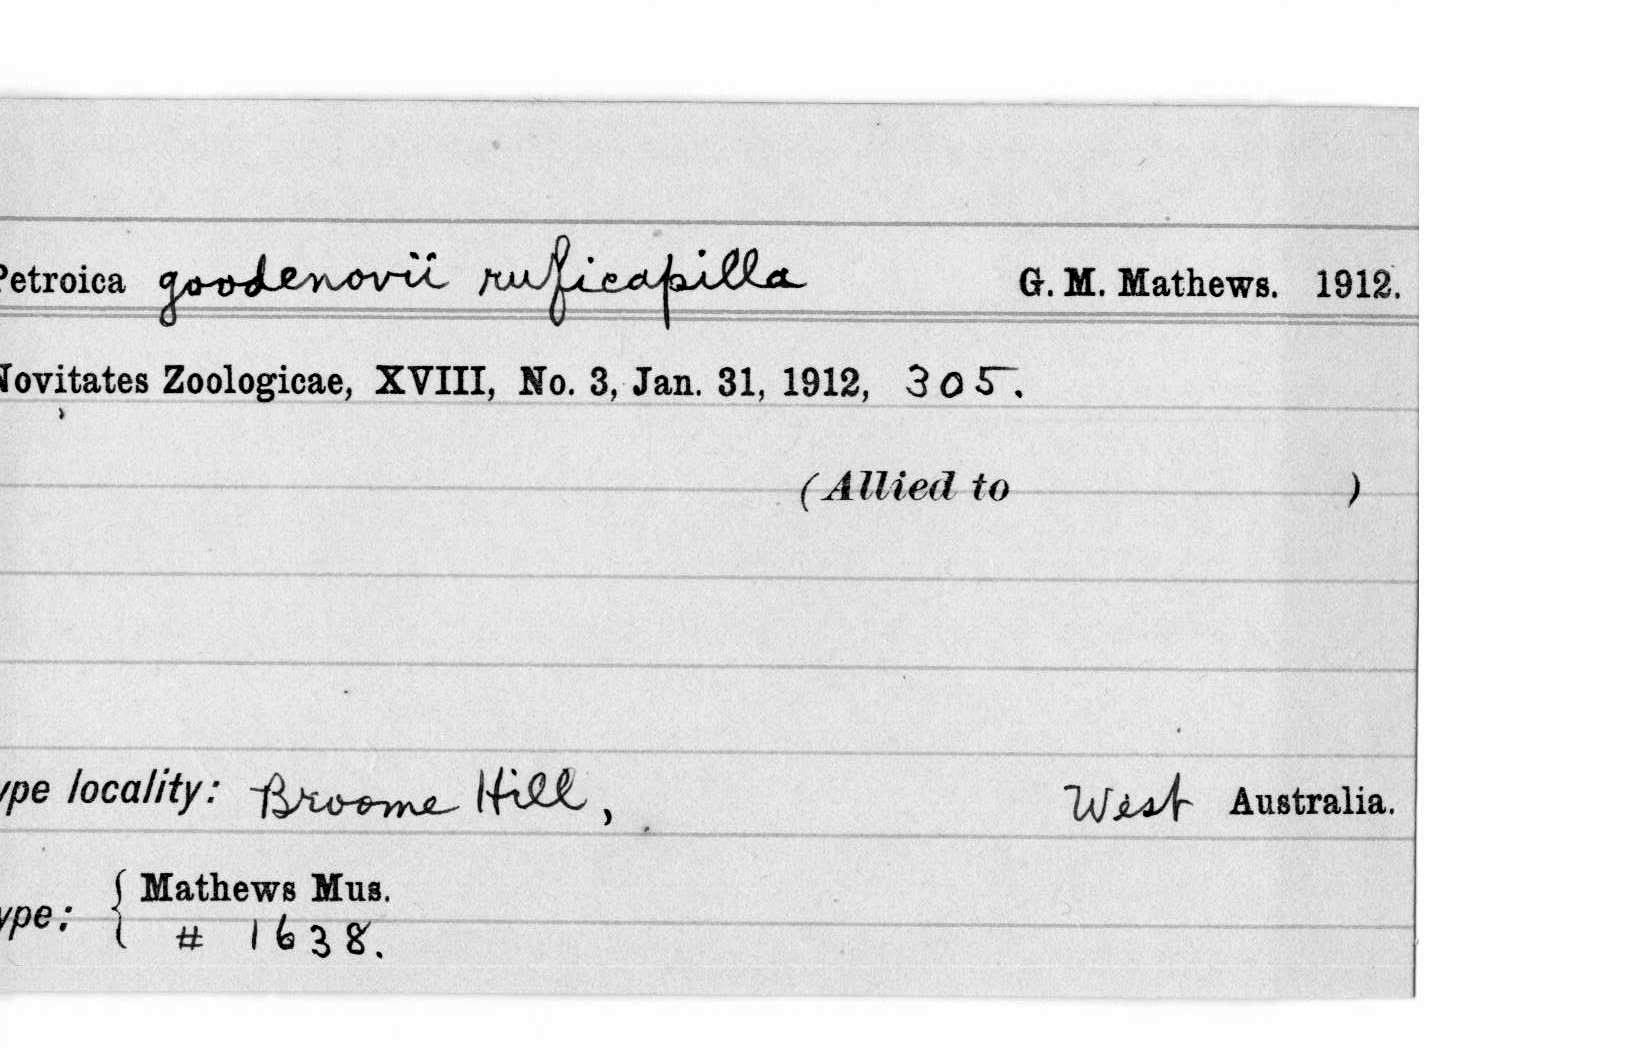 Petroica goodenovii ruficapilla G. M. Mathews. 1912.
Novitates Zoologicae, XVIII, No. 3, Jan. 31, 1912, 305.
(Allied to )
ype locality: Broome Hill, West Australia.
ype: { Mathews Mus.
# 1638.